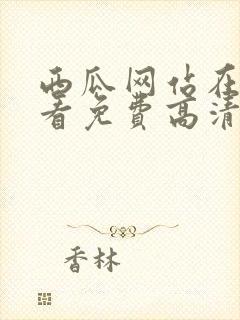 西瓜网站在
看免费高清
香林